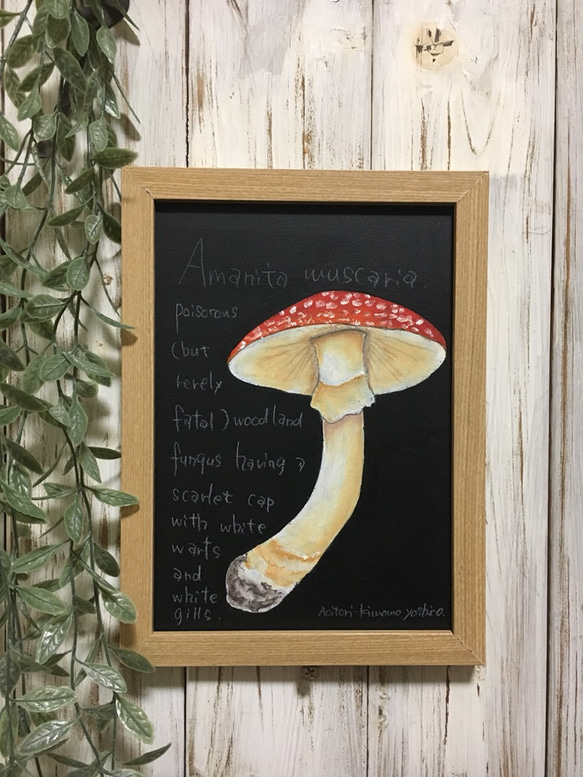 Amanita muscaria
poisorous
(but
rerely
fatal) woodland
fungus having a
scarlet cap
with white
warts
and
white
gills.